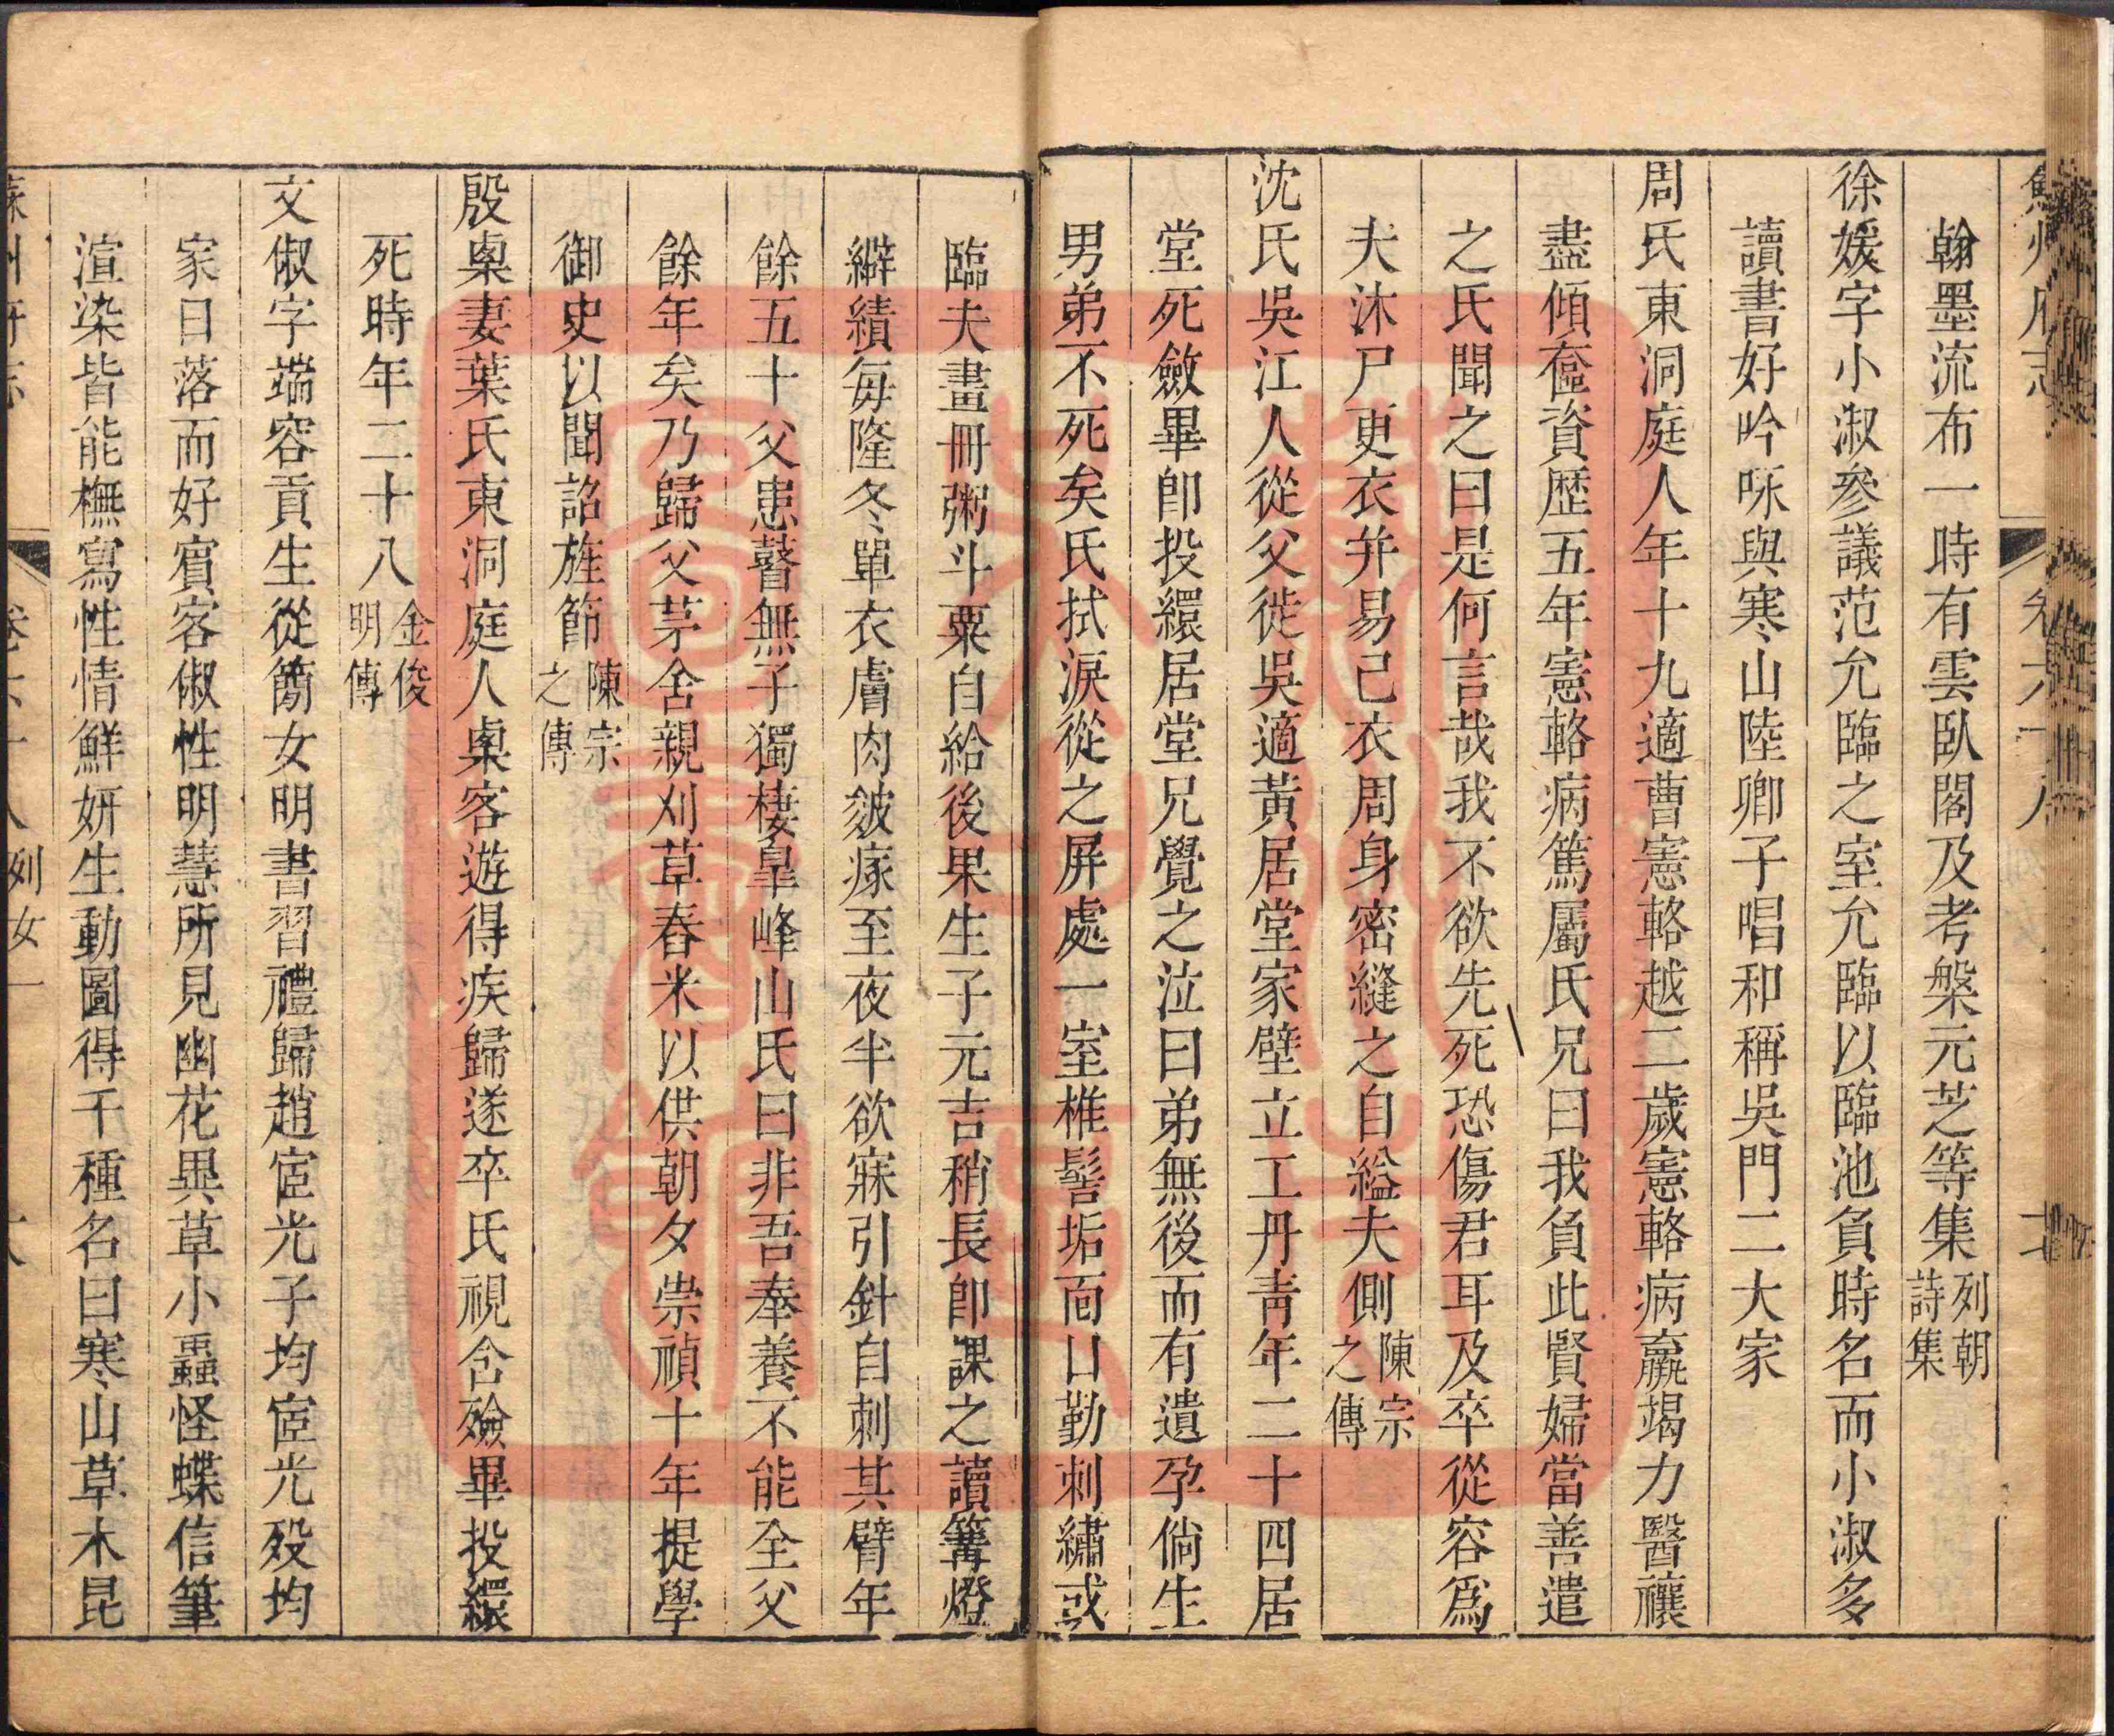 翰墨流布一時有雲臥閣及考槃元芝等集列朝詩集
徐媛字小淑參議范允臨之室允臨以臨池負時名而小淑多
讀書好吟咏與寒山陸卿子唱和稱吳門二大家
周氏東洞庭人年十九適曹憲輅越二歲憲輅病羸竭力醫禳
盡傾奩資歷五年憲輅病篤屬氏兄曰我負此賢婦當善遣
之氏聞之曰是何言哉我不欲先死恐傷君耳及卒從容爲
夫沐尸更衣并易己衣周身密縫之自縊夫側陳宗之傳
沈氏吳江人從父徙吳適黃居堂家壁立工丹靑年二十四居
堂死斂畢卽投繯居堂兄覺之泣曰弟無後而有遺孕倘生
男弟不死矣氏拭淚從之屏處一室椎髻垢面口勤刺繡或
臨夫畫冊粥斗粟自給後果生子元吉稍長卽課之讀篝燈
緶績每隆冬單衣膚肉皴瘃至夜半欲寐引針自刺其臂年
餘五十父患瞽無子獨棲皐峰山氏曰非吾奉養不能全父
餘年矣乃歸父茅舍親刈草舂米以供朝夕崇禎十年提學
御史以聞詔旌節陳宗之傳
殷㮚妻葉氏東洞庭人㮚客遊得疾歸遂卒氏視含殮畢投繯
死時年二十八金俊明傳
文俶字端容貢生從簡女明書習禮歸趙宧光子均宧光歿均
家日落而好賓客俶性明慧所見幽花異草小蟲怪蝶信筆
渲染皆能橅寫性情鮮妍生動圖得千種名曰寒山草木昆